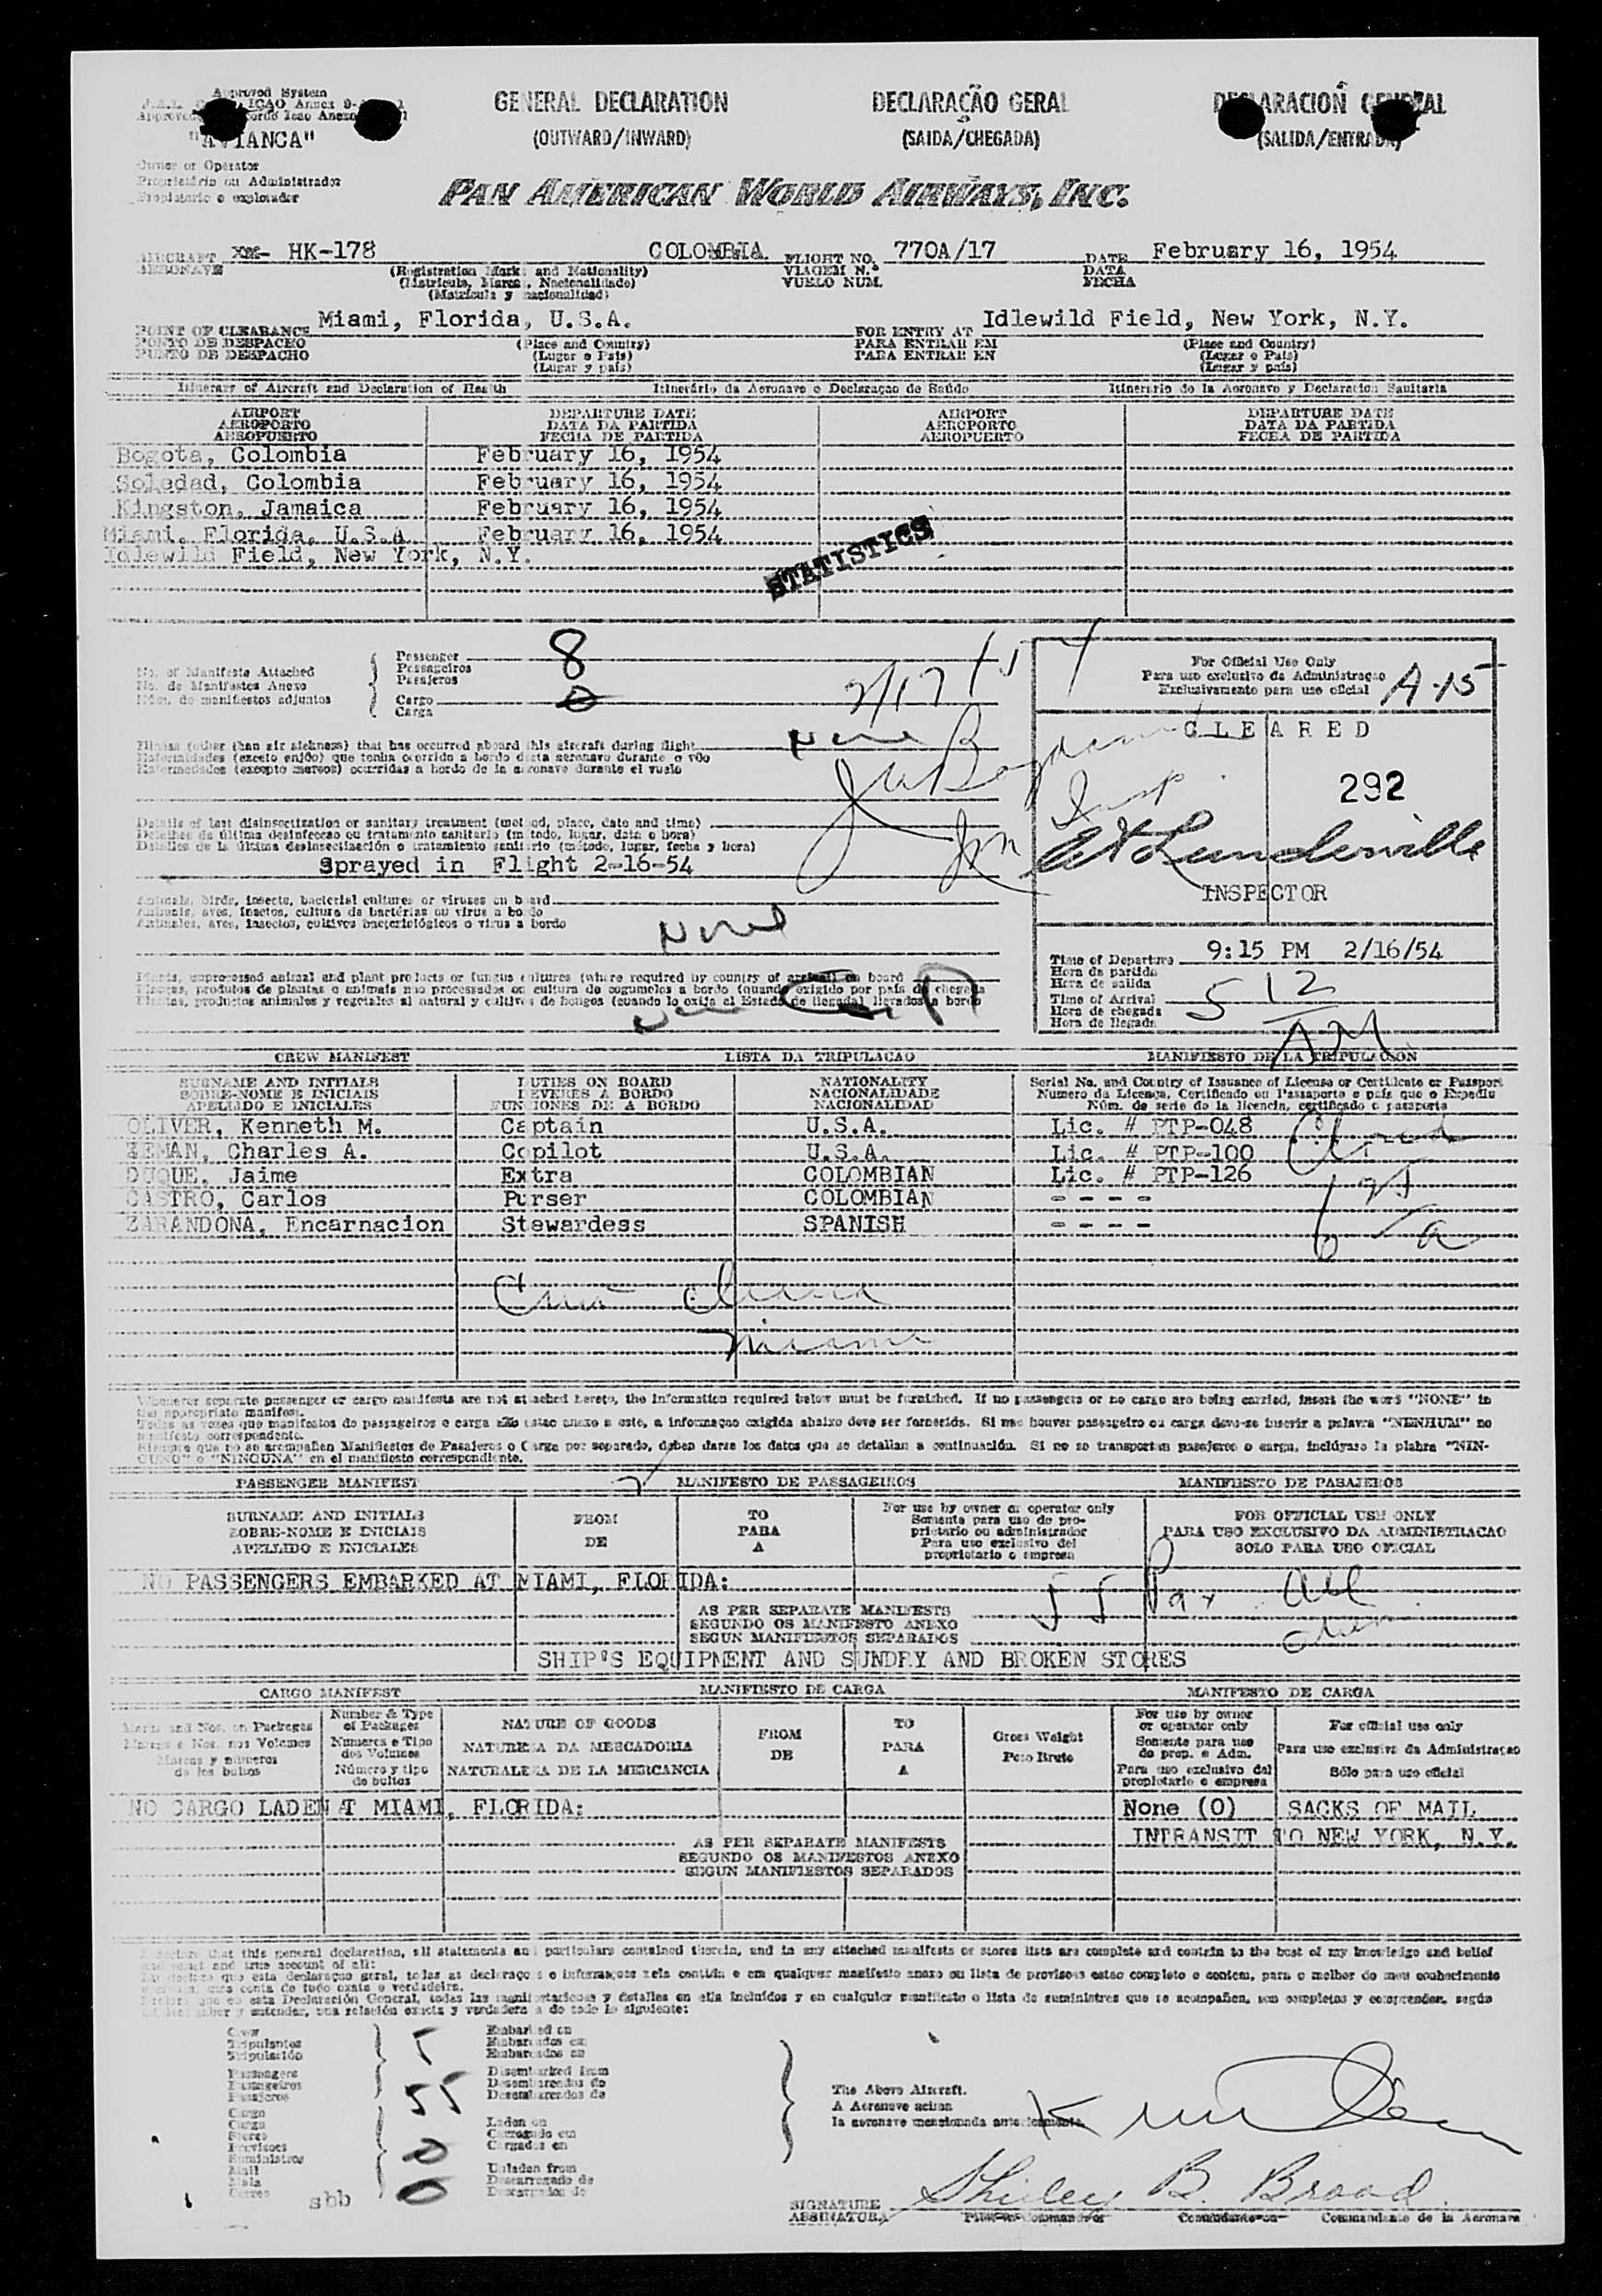 Approved System
ICAO Annex 9-
"AVIANCA"
Owner or Operator
Proprietário ou Administrador
Propietario o explotador
GENERAL DECLARATION
(OUTWARD/INWARD)
DECLARAÇÃO GERAL
(SAIDA/CHEGADA)
DECLARACION GENERAL
(SALIDA/ENTRADA)
PAN AMERICAN WORLD AIRWAYS, INC.
AIRCRAFT HK-178 COLOMBIA FLIGHT NO. 770A/17 DATE February 16, 1954
AERONAVE (Registration Marks and Nationality) VIAGEM N.º DATA
(Matricula, Marca, Nacionalidade) VUELO NUM. FECHA
(Matrícula y nacionalidad)
POINT OF CLEARANCE Miami, Florida, U.S.A. FOR ENTRY AT Idlewild Field, New York, N.Y.
PONTO DE DESPACHO (Place and Country) PARA ENTRAR EM (Place and Country)
PUNTO DE DESPACHO (Lugar e País) PARA ENTRAR EN (Lugar e País)
(Lugar y país) (Lugar y país)
Itinerary of Aircraft and Declaration of Health Itinerário da Aeronave e Declaraçao de Saúde Itinerario de la Aeronave y Declaration Sanitaria
AIRPORT DEPARTURE DATE AIRPORT DEPARTURE DATE
AEROPORTO DATA DA PARTIDA AEROPORTO DATA DA PARTIDA
AEROPUERTO FECHA DE PARTIDA AEROPUERTO FECHA DE PARTIDA
Bogota, Colombia February 16, 1954
Soledad, Colombia February 16, 1954
Kingston, Jamaica February 16, 1954
Miami, Florida, U.S.A. February 16, 1954
Idlewild Field, New York, N.Y.
STATISTICS
No. of Manifests Attached
No. de Manifestos Anexo
Núm. de manifiestos adjuntos
Passenger 8
Passageiros
Pasajeros
Cargo 0
Carga
2/17/54
For Official Use Only
Para uso exclusivo da Administraçao
Exclusivamente para uso oficial
A-15
CLEARED
292
INSPECTOR
Illness (other than air sickness) that has occurred aboard this aircraft during flight None
Enfermidades (exceto enjôo) que tenha ocorrido a bordo desta aeronave durante o vôo
Enfermedades (excepto mareos) ocurridas a bordo de la aeronave durante el vuelo
Details of last disinsectization or sanitary treatment (method, place, date and time)
Detalhes da última desinfeccao ou tratamento sanitario (metodo, lugar, data e hora)
Detalles de la última desinsectización o tratamiento sanitario (método, lugar, fecha y hora)
Sprayed in Flight 2-16-54
Animals, birds, insects, bacterial cultures or viruses on board
Animais, aves, insetos, cultura de bactérias ou virus a bordo
Animales, aves, insectos, cultivos bacteriológicos o virus a bordo
None
Plants, unprocessed animal and plant products or fungus cultures (where required by country of arrival) on board
Plantas, produtos de plantas e animais nao processados ou cultura de cogumelos a bordo (quando exigido por país de chegada
Plantas, productos animales y vegetales al natural y cultivos de hongos (cuando lo exija el Estado de llegada) llevados a bordo
Time of Departure 9:15 PM 2/16/54
Hora da partida
Hora de salida
Time of Arrival 5 12 AM
Hora de chegada
Hora de llegada
CREW MANIFEST LISTA DA TRIPULACAO MANIFIESTO DE LA TRIPULACION
SURNAME AND INITIALS DUTIES ON BOARD NATIONALITY Serial No. and Country of Issuance of License or Certificate or Passport
SOBRE-NOME E INICIAIS DEVERES A BORDO NACIONALIDADE Numero da Licença, Certificado ou Passaporte e país que o Expediu
APELLIDO E INICIALES FUNCIONES DE A BORDO NACIONALIDAD Núm. de serie de la licencia, certificado o pasaporte
OLIVER, Kenneth M. Captain U.S.A. Lic. # PTP-048
ZEMAN, Charles A. Copilot U.S.A. Lic. # PTP-100
DUQUE, Jaime Extra COLOMBIAN Lic. # PTP-126
CASTRO, Carlos Purser COLOMBIAN - - - -
ZARANDONA, Encarnacion Stewardess SPANISH - - - -
Miami
Whenever separate passenger or cargo manifests are not attached hereto, the information required below must be furnished. If no passengers or no cargo are being carried, insert the word "NONE" in
the appropriate manifest.
Todas as vezes que manifestos de passageiros e carga não estao anexo a este, a informaçao exigida abaixo deve ser fornerida. Si nao houver passageiro ou carga deve-se inserir a palavra "NENHUM" no
manifesto correspondente.
Siempre que no se acompañen Manifiestos de Pasajeros o Carga por separado, deben darse los datos que se detallan a continuación. Si no se transportan pasajeros o carga, inclúyase la plabra "NIN-
GUNO" o "NINGUNA" en el manifiesto correspondiente.
PASSENGER MANIFEST MANIFESTO DE PASSAGEIROS MANIFIESTO DE PASAJEROS
SURNAME AND INITIALS FROM TO For use by owner or operator only FOR OFFICIAL USE ONLY
SOBRE-NOME E INICIAIS DE PARA Somente para uso do proprietario ou administrador PARA USO EXCLUSIVO DA ADMINISTRACAO
APELLIDO E INICIALES A Para uso exclusivo del propietario o empresa SOLO PARA USO OFICIAL
NO PASSENGERS EMBARKED AT MIAMI, FLORIDA:
55 Pax
AS PER SEPARATE MANIFESTS
SEGUNDO OS MANIFESTO ANEXO
SEGUN MANIFIESTOS SEPARADOS
SHIP'S EQUIPMENT AND SUNDRY AND BROKEN STORES
CARGO MANIFEST MANIFIESTO DE CARGA MANIFESTO DE CARGA
Marks and Nos. on Packages Number & Type of Packages NATURE OF GOODS FROM TO Gross Weight For use by owner or operator only For official use only
Marcas e Nos. nos Volumes Numeros e Tipo dos Volumes NATUREZA DA MERCADORIA DE PARA Peso Bruto Somente para uso do prop. e Adm. Para uso exclusivo da Administraçao
Marcas y números de los bultos Número y tipo de bultos NATURALEZA DE LA MERCANCIA A Para uso exclusivo del propietario o empresa Sólo para uso oficial
NO CARGO LADEN AT MIAMI, FLORIDA: None (0) SACKS OF MAIL
INTRANSIT TO NEW YORK, N.Y.
AS PER SEPARATE MANIFESTS
SEGUNDO OS MANIFESTOS ANEXO
SEGUN MANIFIESTOS SEPARADOS
I declare that this general declaration, all statements and particulars contained therein, and in any attached manifests or stores lists are complete and contain to the best of my knowledge and belief
and exact and true account of all:
Crew 5 Embarked on
Tripulantes Embarcados em
Tripulación Embarcados en
Passengers 55 Disembarked from
Passageiros Desembarcados do
Pasajeros Desembarcados de
Cargo
Carga
Stores 0 Laden on
Provisoes Carregado em
Suministros Cargados en
Mail 0 Unladen from
Mala Descarregado de
Correo Descargados de
sbb
The Above Aircraft.
A Aeronave acima
la aeronave mencionada anteriormente
SIGNATURE Shirley B. Broad
ASSINATURA Comandante de la Aeronave